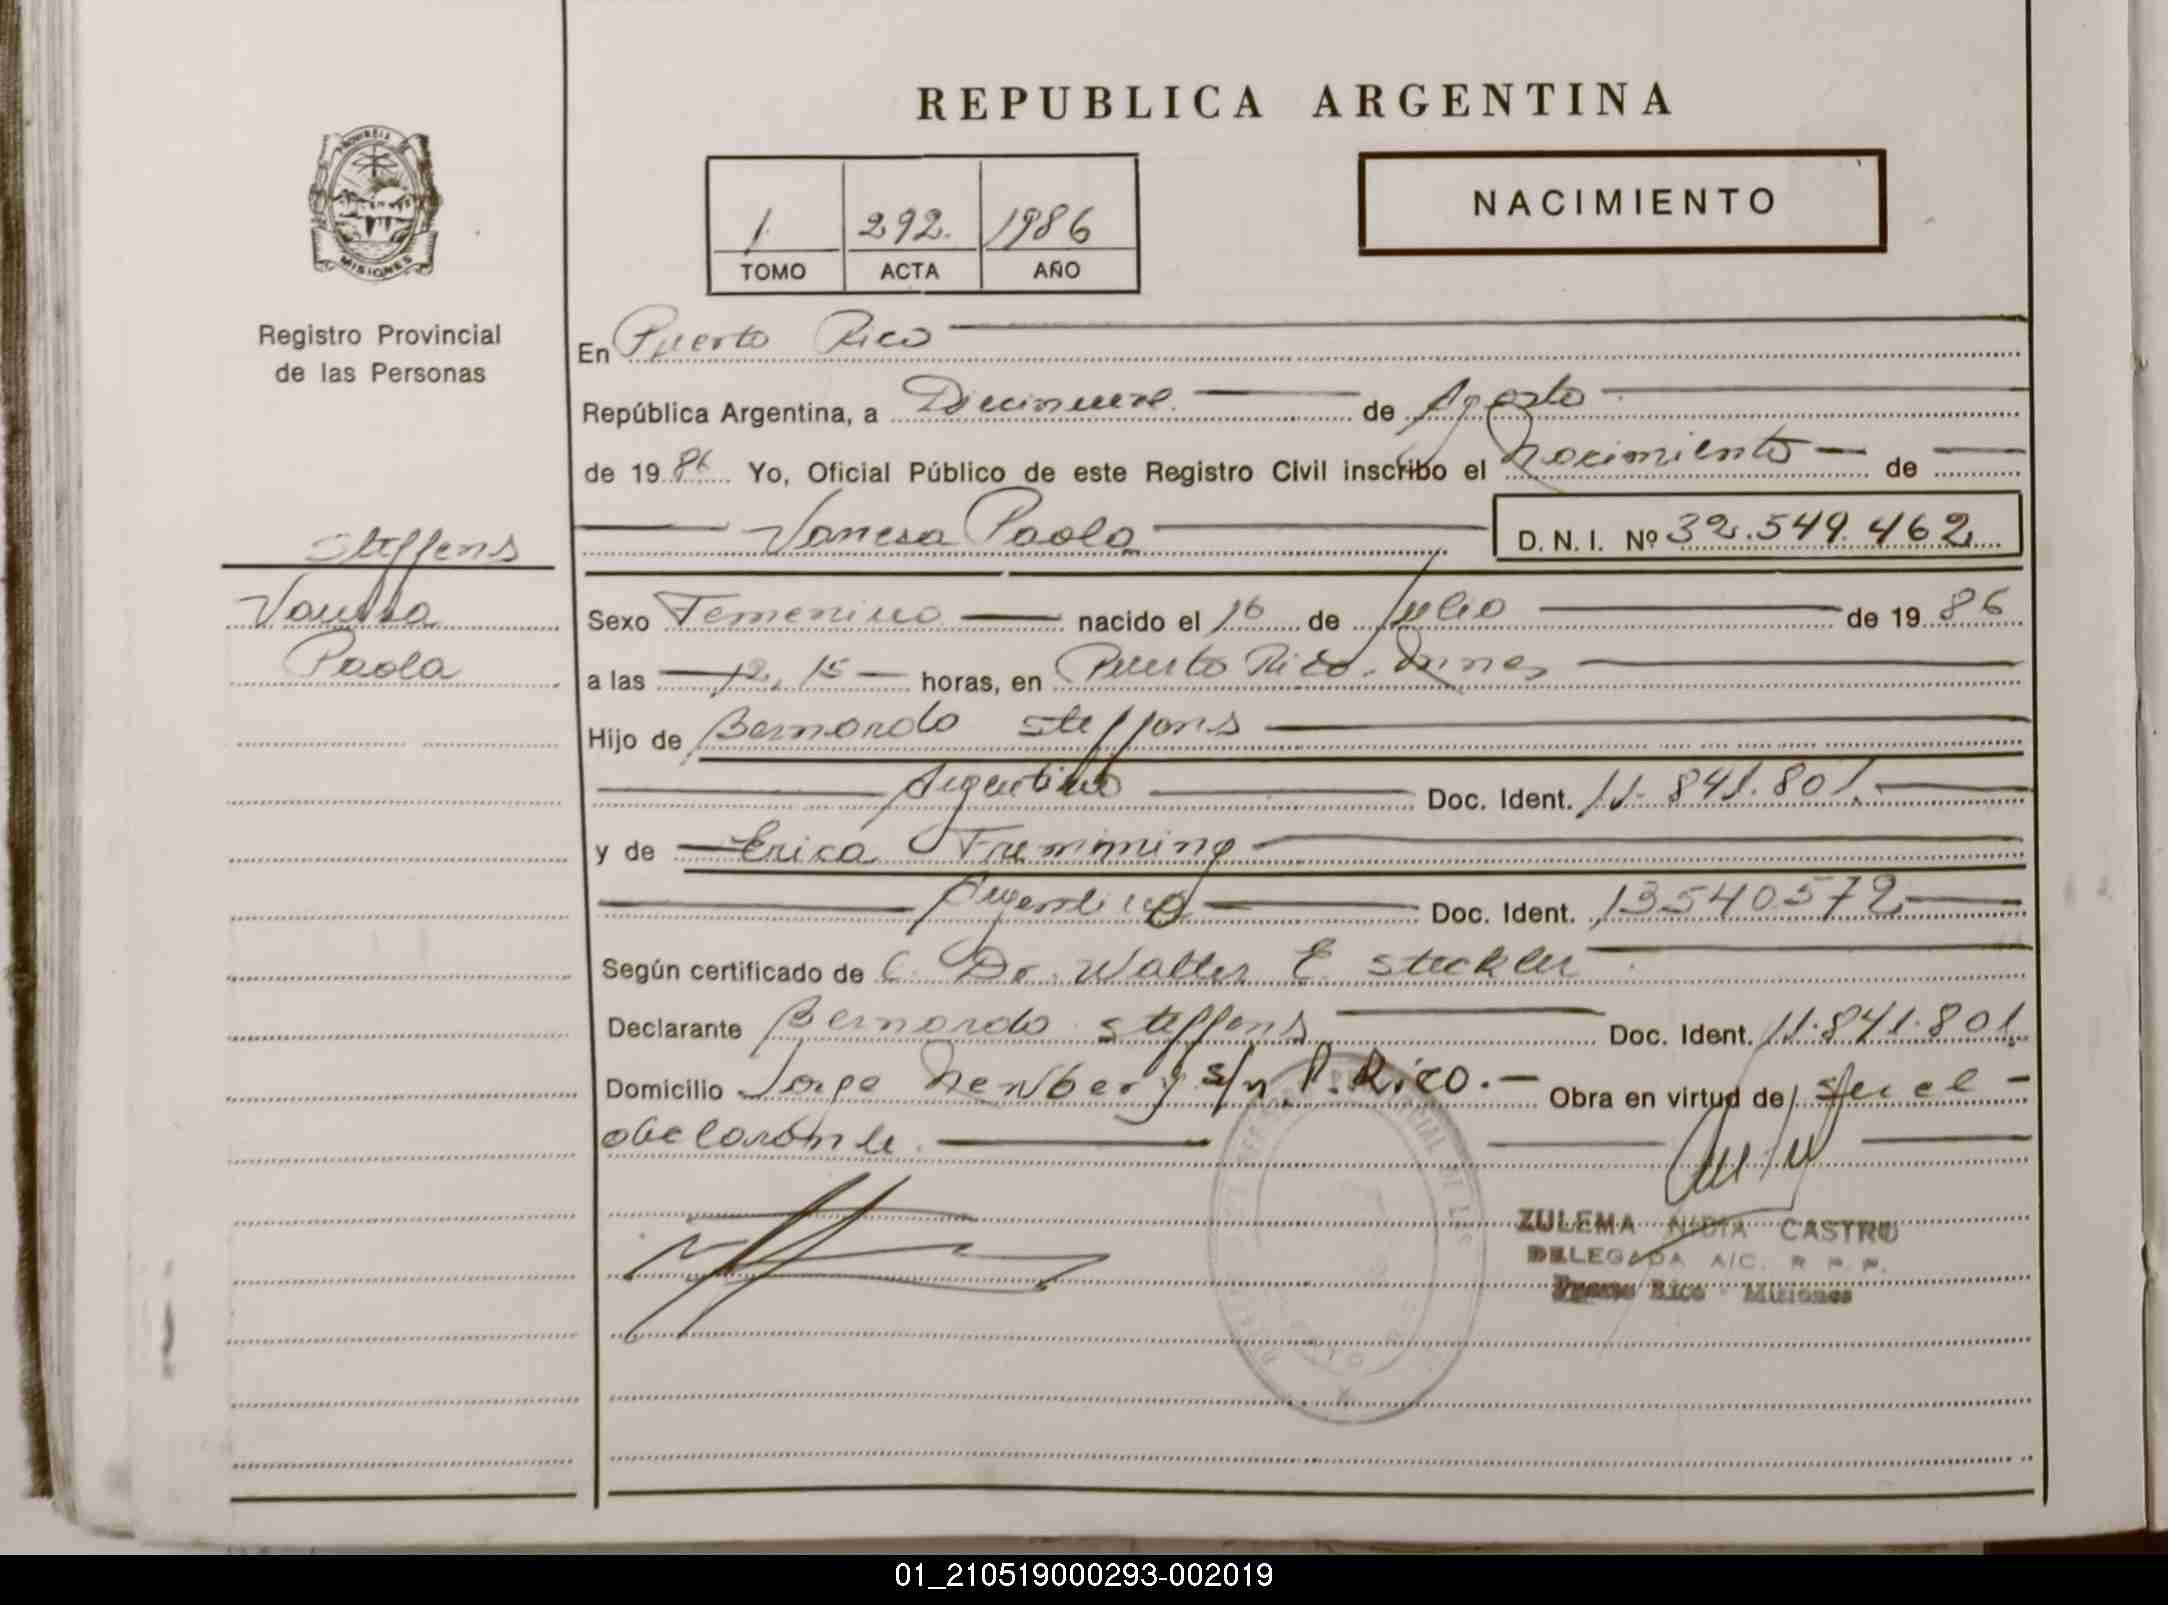 REPUBLICA ARGENTINA
PROVINCIA DE
MISIONES
Registro Provincial
de las Personas
1 292. 1986
TOMO ACTA AÑO
NACIMIENTO
En Puerto Rico
República Argentina, a Diecinueve de Agosto
de 1986 Yo, Oficial Público de este Registro Civil inscribo el Nacimiento de
Vanesa Paola D. N. I. Nº 32.549.462
Steffens
Vanesa
Paola
Sexo Femenino nacido el 16 de Julio de 1986
a las 12,15 horas, en Puerto Rico. Mnes
Hijo de Bernardo Steffens
Argentino Doc. Ident. 11.841.801
y de Erica Fremming
Argentina Doc. Ident. 13540572
Según certificado de Dr. Walter E. Steckler
Declarante Bernardo Steffens Doc. Ident. 11.841.801
Domicilio Jorge Newbery s/n P. Rico. Obra en virtud de ser el
declarante
ZULEMA NIDIA CASTRO
DELEGADA A/C. R. P. P.
Puerto Rico - Misiones
01_210519000293-002019